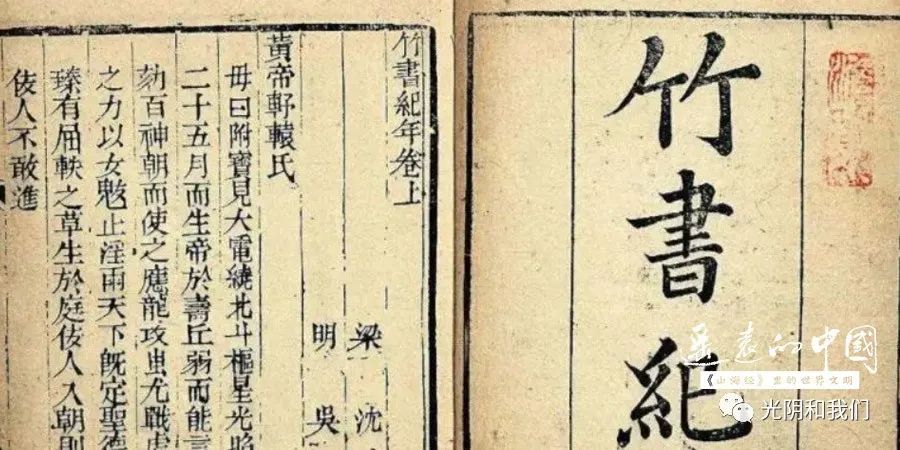 竹書紀
竹書紀年卷上
梁 沈
明 吳
黃帝軒轅氏
母曰附寶見大電繞北斗樞星光照
二十五月而生帝於壽丘弱而能言
劾百神朝而使之應龍攻蚩尤戰虎
之力以女魃止淫雨天下旣定聖德
臻有屈軼之草生於庭佞人入朝則
佞人不敢進
的中國
《山海经》里的世界文明
光阴和我们